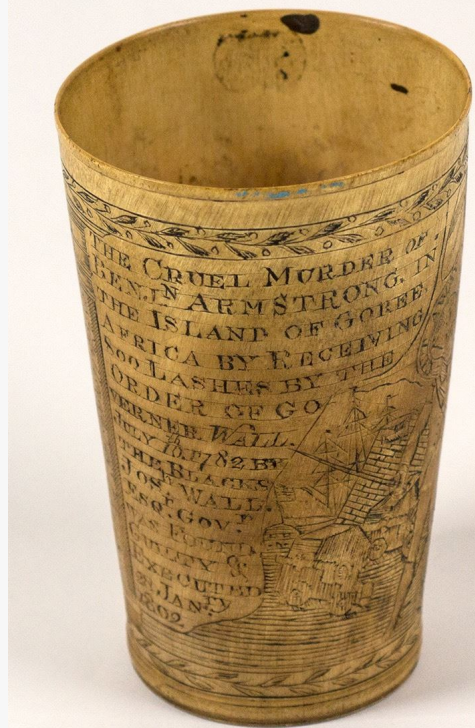 THE CRUEL MURDER OF
BENJN ARMSTRONG, IN
THE ISLANT OF GOREE
AFRICA BY RECEIVING
800 LASHES BY THE
ORDER OF GO
VERNER WALL.
JULY 10 1782 BY
THE BLACKS
JOSH WALL.
ESQR. GOVR.
WAS FOUND
GUILTY &
EXECUTED
28 JANRY
1802